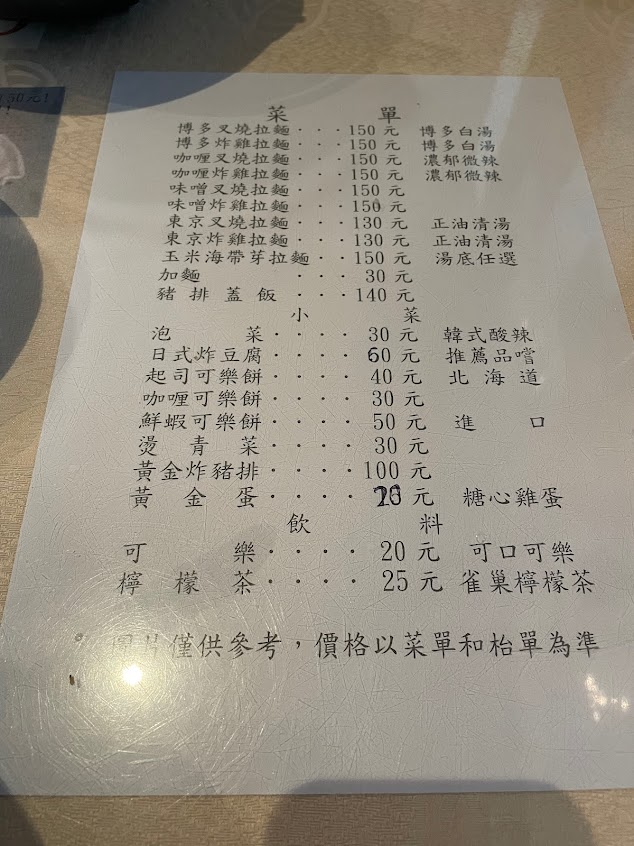 50元!
菜 單
博多叉燒拉麵···150 元 博多白湯
博多炸雞拉麵···150 元 博多白湯
咖喱叉燒拉麵···150 元 濃郁微辣
咖喱炸雞拉麵···150 元 濃郁微辣
味噌叉燒拉麵···150 元
味噌炸雞拉麵···150 元
東京叉燒拉麵···130 元 正油清湯
東京炸雞拉麵···130 元 正油清湯
玉米海帶芽拉麵···150 元 湯底任選
加麵 ···30 元
豬 排 蓋 飯 ···140 元
小 菜
泡 菜····30 元 韓式酸辣
日式炸豆腐····60 元 推薦品嚐
起司可樂餅····40 元 北 海 道
咖喱可樂餅····30 元
鮮蝦可樂餅····50 元 進 口
燙 青 菜····30 元
黃金炸豬排····100 元
黃 金 蛋···· 元 糖心雞蛋
飲 料
可 樂····20 元 可口可樂
檸 檬 茶····25 元 雀巢檸檬茶
圖片僅供參考，價格以菜單和枱單為準